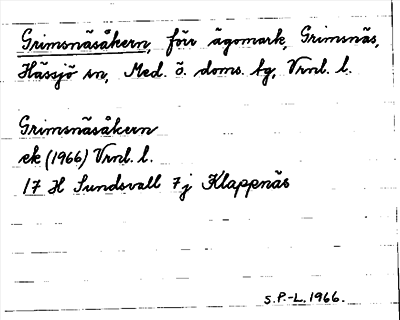 Grimsnäsåkern, förr ägomark, Grimsnäs,
Hässjö sn, Med. ö. doms. tg, Vrnl. l.
Grimsnäsåkern
ek (1966) Vrnl. l.
17 H Sundsvall 7 j Klappnäs
S.P.-L. 1966.